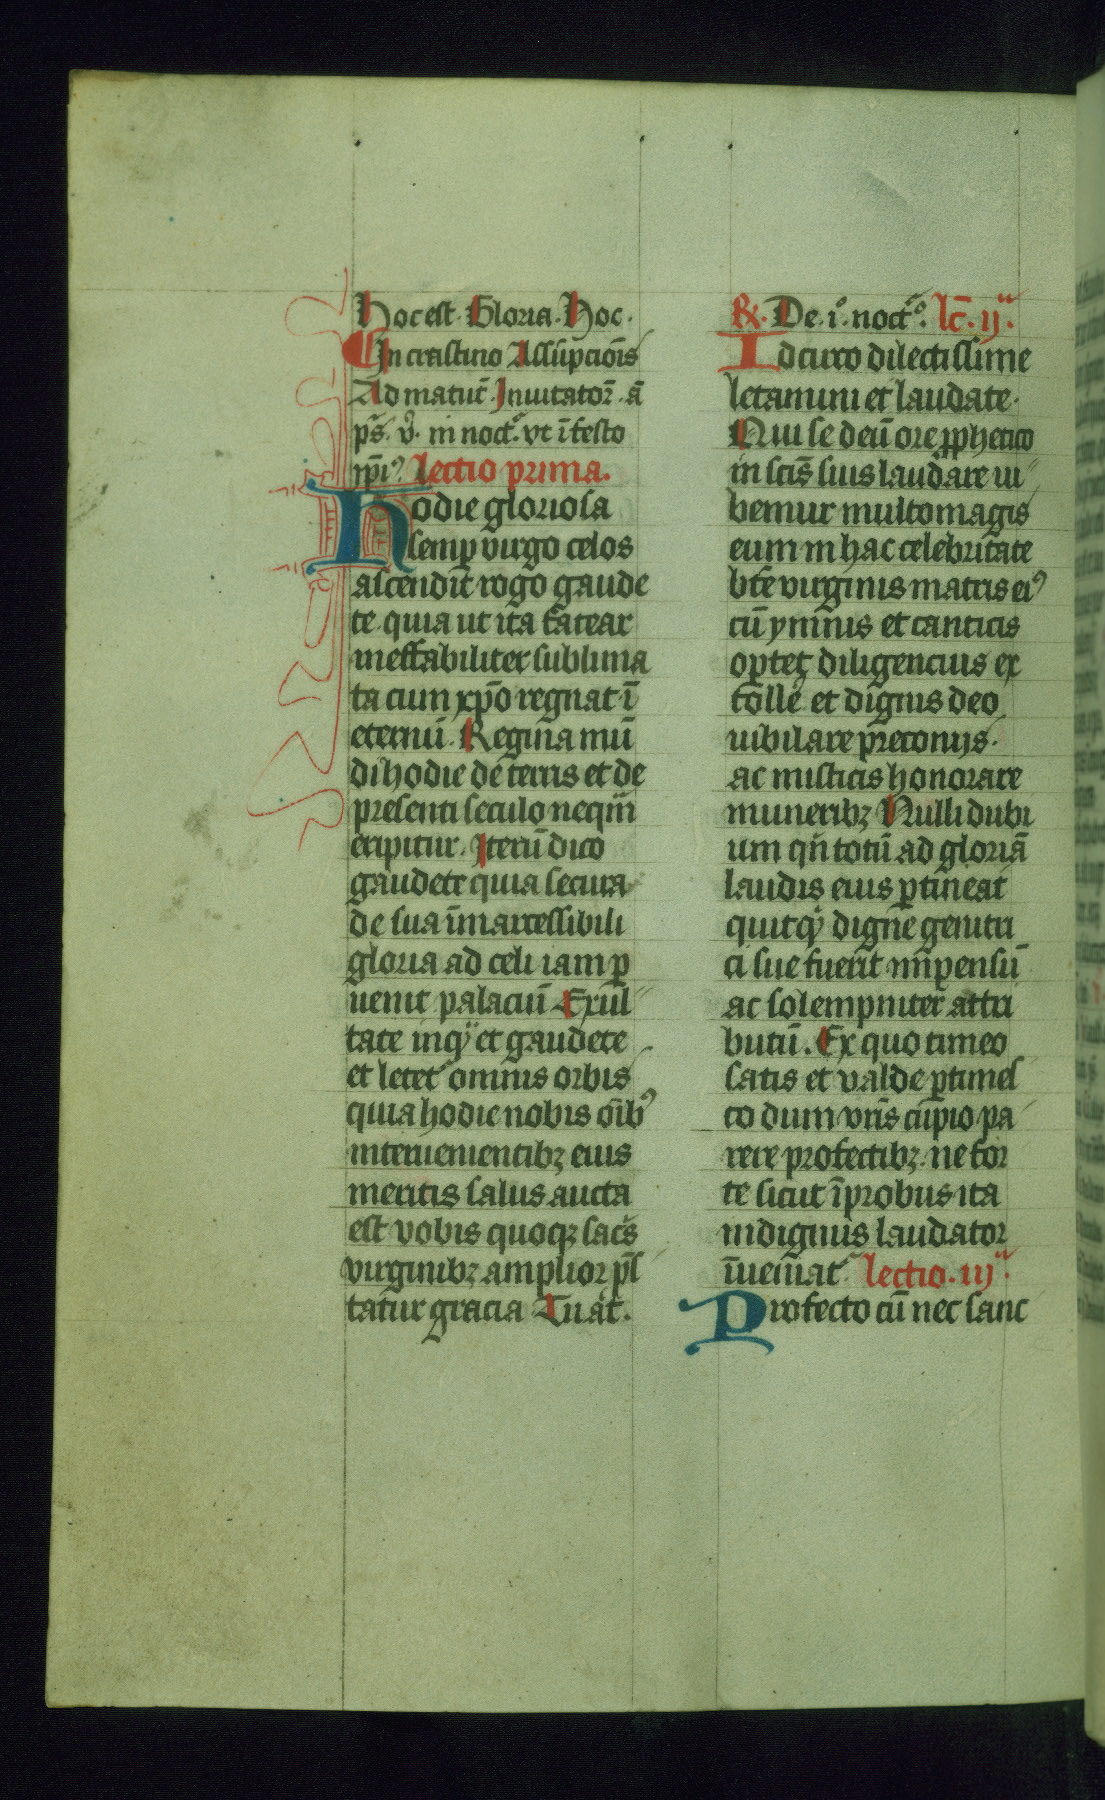 Hoc est. Gloria. Hoc.
In crastino Assūpciōis
Ad matut̄. Inuitator̄. ā
ps̄. v̊. in noct̄. vt ī festo
ip̄i⁹. lectio prima.
Hodie gloriosa
semp̲ virgo celos
ascendit̄ rogo gaude
te quia ut ita fatear
ineffabiliter sublima
ta cum xp̄o regnat ī
eternū. Regina mū
di hodie de terris et de
presenti seculo neqm̄
eripitur. Iterū dico
gaudete quia secura
de sua īmarcessibili
gloria ad celi iam p̲
uenit palaciū Exul
tate inqͥ et gaudete
et letet᷑ omnis orbis
quia hodie nobis oīb⁹
interuenientibꝫ eius
meritis salus aucta
est vobis quoqꝫ sac̄s
virginibꝫ amplior p̄s
tatur gracia Tu at̄.
℞. De. i°. noct̄°. lc̄. ijͣ.
Idcirco dilectissime
letamini et laudate.
Nui se deū ore ꝓphetico
in sc̄is suis laudare iu
bemur multomagis
eum in hac celebritate
bt̄e virginis matris ei⁹
cū ymnis et canticis
oꝑtet diligencius ex
tolle᷑ et dignis deo
iubilare p̄coniis.
ac misticis honorare
muneribꝫ Nulli dubi
um qn̄ totū ad gloriā
laudis eius ꝑtineat
quitqͥ digne geniti
ci sue fuerit īmpensū
ac solempniter attri
butū. Ex quo timeo
satis et valde ꝑtimes
co dum vr̄is cupio pa
rere profectibꝫ ne for
te sicut īprobus ita
indignus laudator
īueniat᷑ lectio. iijͣ.
Profecto cū nec sanc